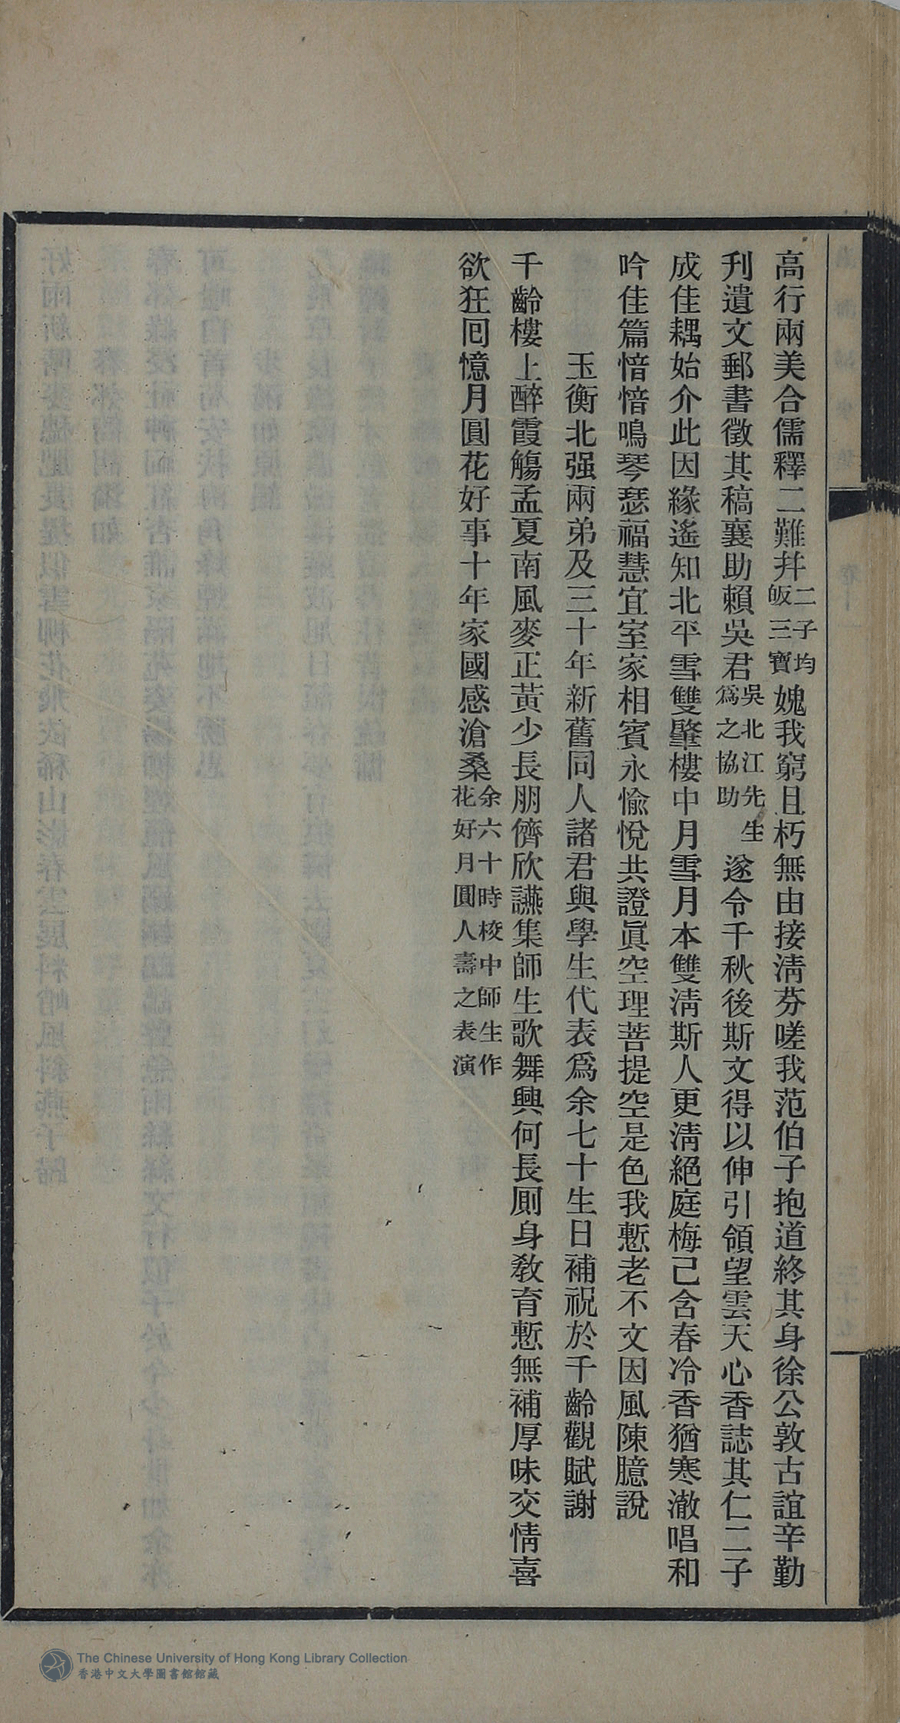 高行兩美合儒釋二難幷二子均皈三寶媿我窮且朽無由接淸芬嗟我范伯子抱道終其身徐公敦古誼辛勤
刋遺文郵書徵其稿襄助賴吳君吳北江先生爲之協助遂令千秋後斯文得以伸引領望雲天心香誌其仁二子
成佳耦始介此因緣遙知北平雪雙肇樓中月雪月本雙淸斯人更淸絕庭梅己含春冷香猶寒澈唱和
吟佳篇愔愔鳴琴瑟福慧宜室家相賓永愉悅共證眞空理菩提空是色我慙老不文因風陳臆說
玉衡北强兩弟及三十年新舊同人諸君與學生代表爲余七十生日補祝於千齡觀賦謝
千齡樓上醉霞觴孟夏南風麥正黃少長朋儕欣讌集師生歌舞興何長厠身敎育慙無補厚味交情喜
欲狂囘憶月圓花好事十年家國感滄桑余六十時校中師生作花好月圓人壽之表演
The Chinese University of Hong Kong Library Collection
香港中文大學圖書館館藏